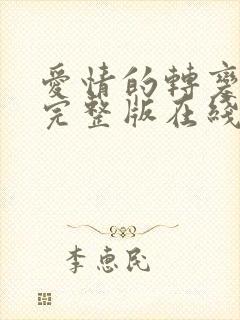 愛情的轉變
完整版在綫
李惠民